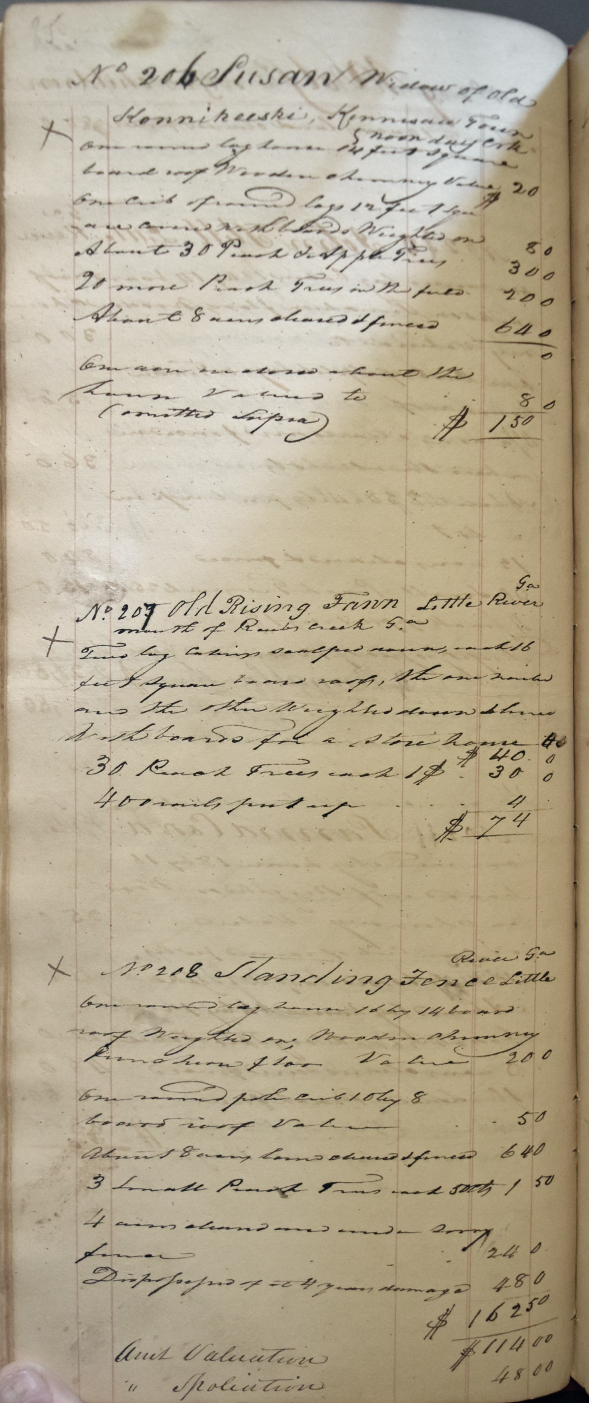 No 206 Susan Widow of Old
Konnikeeski, Kennesaw Town
Noonday Crk
One round log house 14 feet square
board roof Wooden chimney Value $ 20
One crib of round logs 12 feet squ
are covered with boards Weighted on 8 0
About 30 Peach & Apple Trees 30 0
20 more Peach Trees in the field 20 0
About 8 acres cleared & fenced 64 0
0
One acre enclosed about the
house Valued to 8 0
(omitted Supra) $ 150
No 207 Old Rising Fawn Little River Ga
mouth of Creek Ga
Two log Cabins scalped down, each 16
feet square board roofs, the one nailed
and the other Weighted down & lined
With boards for a store house
$ 40 0
30 Peach Trees each 1$ 30 0
400 rails put up 4
$ 74
River Ga
No 208 Standing Fence Little
One round log house 16 by 14 board
roof Weighted on, Wooden chimney
Puncheon floor Value 20 0
One round pole crib 10 by 8
board roof Value 5 0
About 8 acres land cleared & fenced 64 0
3 Small Peach Trees each 50cts 1 50
4 acres cleared and under sorry
fence 24 0
Dispossessed of it 4 years damage 48 0
$ 162 50
Amt Valuation $ 114 00
" Spoliation 48 00